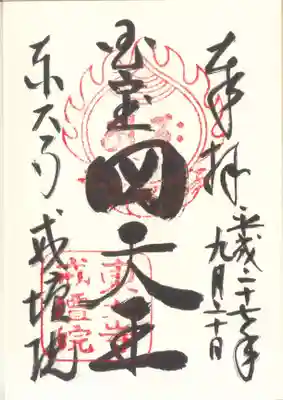 奉拝
平成二十七年
九月二十日
国宝
四天王
東大寺
戒壇院
東大寺
戒壇院